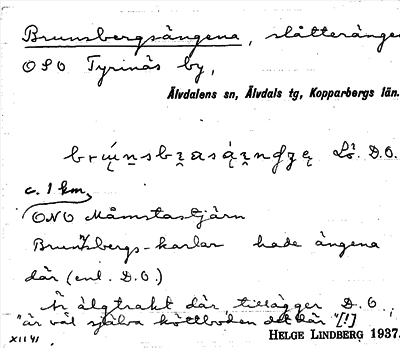 Brunnsbergsängena, slåtterängar
OSO Tyrinäs by,
Älvdalens sn, Älvdals tg, Kopparbergs län.
D.O.
c. 1 km
ONO Måmstastjärn
Brunnsbergs-karlar hade ängena
där (enl. D.O.)
Är älgtrakt där tillägger D.O.,
"är väl själva köttboden det där"[!]
XII 41
HELGE LINDBERG 1937.